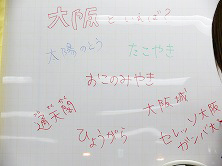 大阪といえば?
太陽のとう
たこやき
おこのみやき
通天閣
つうてんかく
大阪城
ひょうがら
セレッソ大阪
ガンバ大